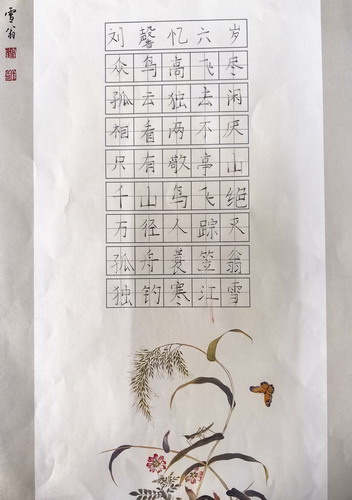 雪翁
刘馨忆六岁
众鸟高飞尽
孤云独去闲
相看两不厌
只有敬亭山
千山鸟飞绝
万径人踪灭
孤舟蓑笠翁
独钓寒江雪